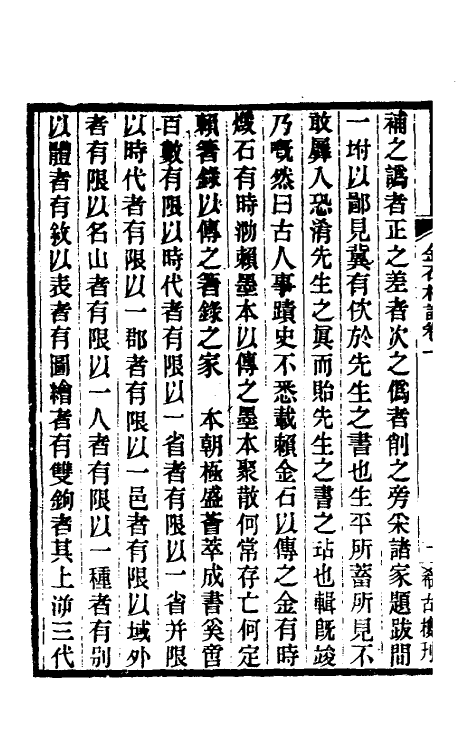 補之譌者正之差者次之僞者削之旁采諸家題跋間
一坿以鄙見冀有佽於先生之書也生平所蓄所見不
敢羼入恐淆先生之眞而貽先生之書之玷也輯旣竣
乃嘅然曰古人事蹟史不悉載賴金石以傳之金有時
燬石有時泐賴墨本以傳之墨本聚散何常存亡何定
賴箸錄以傳之箸錄之家　本朝極盛薈萃成書奚啻
百數有限以時代者有限以一省者有限以一省并限
以時代者有限以一郡者有限以一邑者有限以域外
者有限以名山者有限以一人者有限以一種者有別
以體者有敘以表者有圖繪者有雙鉤者其上溯三代
金石 卷一
古樓刋